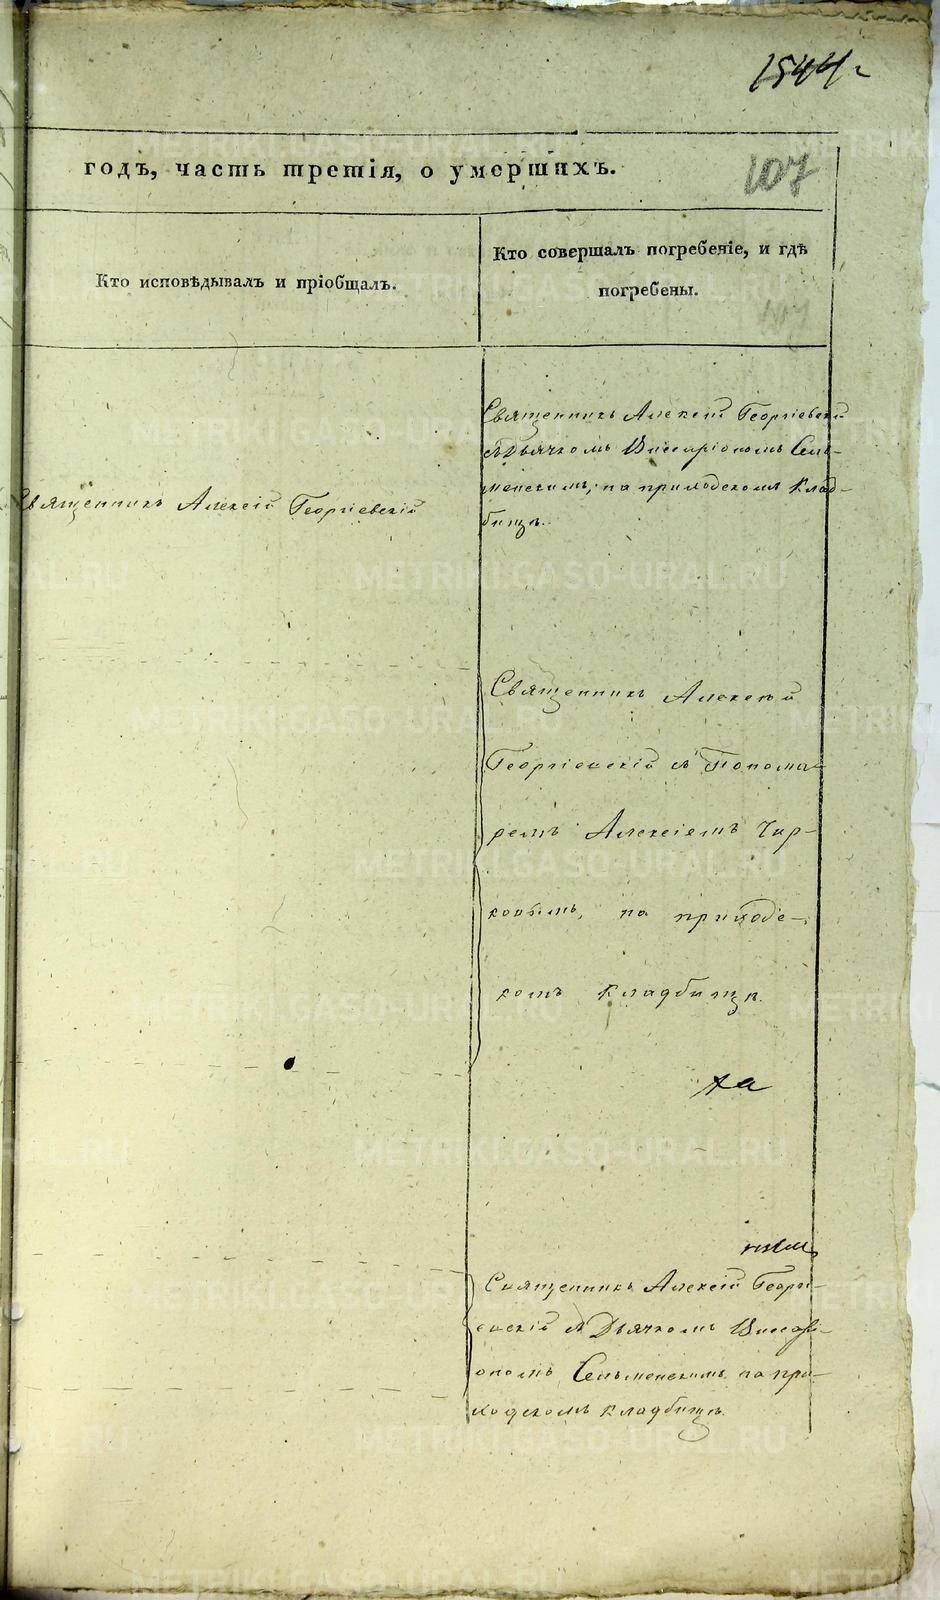 годъ, часть третія, о умершихъ.
107
Кто исповѣдывалъ и пріобщалъ.
Кто совершалъ погребеніе, и гдѣ
погребены.
Священникъ Алексій Георгіевскій
Священникъ Алексій Георгіевскій
съ Дьячкомъ Виссаріономъ Селъ-
менскимъ, на приходскомъ клад-
бищѣ.
Священникъ Алексѣй
Георгіевскій съ Понома-
ремъ Алексіемъ Чир-
ковымъ, на приходс-
комъ кладбищѣ.
Священникъ Алексій Георгі-
евскій съ Дьячкомъ Виссарі-
ономъ Селъменскимъ на при-
ходскомъ кладбищѣ.
METRIKI.GASO-URAL.RU